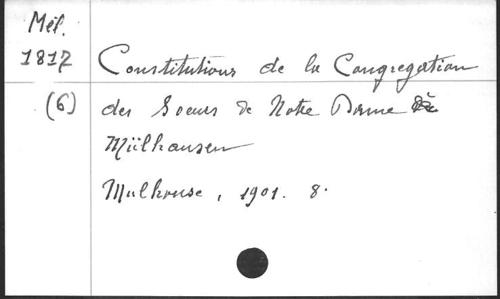 Mél.
1817 Constitutions de la Congregation
(6) des Soeurs de Notre Dame
Mülhausen
Mulhouse, 1901. 8.